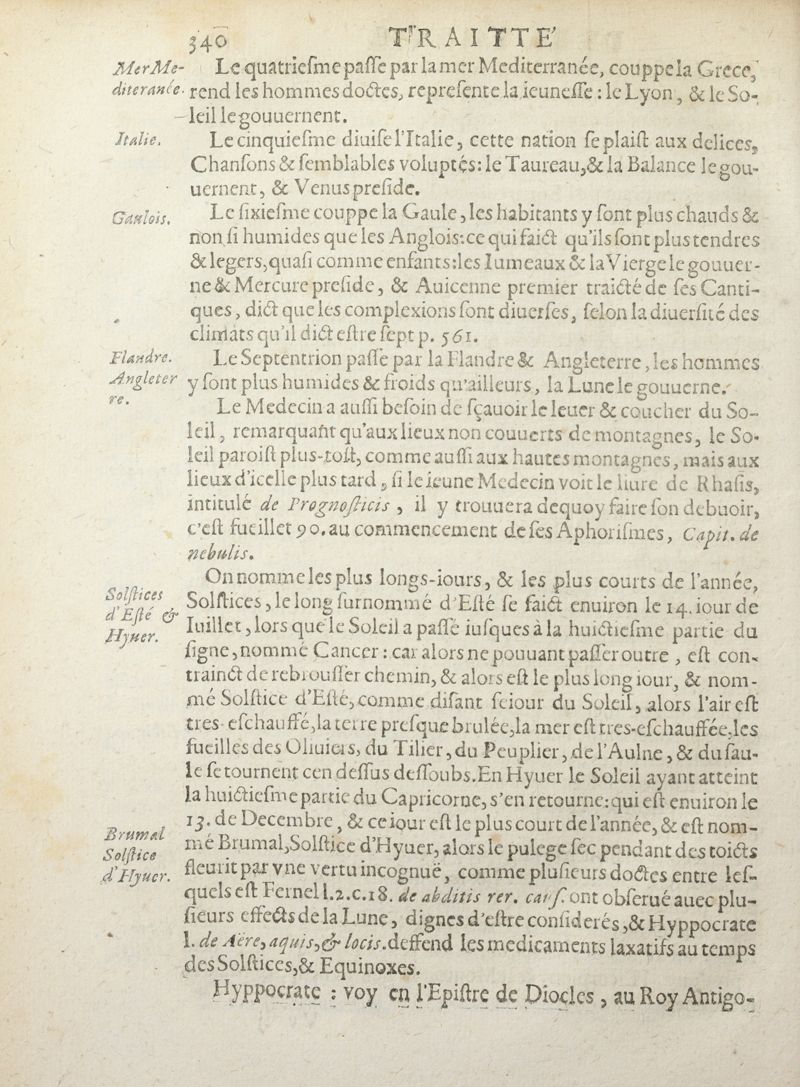 340 TRAITTE'
Mer Me- Le quatriesme passe par la mer Mediterranée, couppe la Grece,
diterance. rend les hommes doctes, represente la ieunesse : le Lyon, & le So-
leil le gouuernent.
Italie. Le cinquiesme diuise l'Italie, cette nation se plaist aux delices,
Chansons & semblables voluptés: le Taureau, & la Balance le gou-
uernent, & Venus preside.
Gaulois. Le sixiesme couppe la Gaule, les habitants y sont plus chauds &
non si humides que les Anglois: ce qui faict qu'ils sont plus tendres
& legers, quasi comme enfants: les Iumeaux & la Vierge le gouuer-
ne & Mercure preside, & Auicenne premier traicté de ses Canti-
ques, dict que les complexions sont diuerses, selon la diuersité des
climats qu'il dict estre sept p. 561.
Flandre. Le Septentrion passe par la Flandre & Angleterre, les hommes
Angleter y sont plus humides & froids qu'ailleurs, la Lune le gouuerne.
re. Le Medecin a aussi besoin de sçauoir le leuer & coucher du So-
leil, remarquant qu'aux lieux non couuerts de montagnes, le So-
leil paroist plus-tost, comme aussi aux hautes montagnes, mais aux
lieux d'icelle plus tard, si le ieune Medecin voit le liure de Rhasis,
intitulé de Prognosticis, il y trouuera dequoy faire son debuoir,
c'est fueillet 90. au commencement de ses Aphorismes, Capit. de
nebulis.
On nomme les plus longs-iours, & les plus courts de l'année,
Solstices Solstices, le long surnommé d'Esté se faict enuiron le 14. iour de
d'Esté & Iuillet, lors que le Soleil a passé iusques à la huictiesme partie du
Hyuer. signe, nommé Cancer : car alors ne pouuant passer outre, est con-
trainct de rebrousser chemin, & alors est le plus long iour, & nom-
mé Solstice d'Esté, comme disant seiour du Soleil, alors l'air est
tres-eschauffé, la terre presque brulée, la mer est tres-eschauffée, les
fueilles des Oliuiers, du Tilier, du Peuplier, de l'Aulne, & du sau-
le se tournent cen dessus dessoubs. En Hyuer le Soleil ayant atteint
la huictiesme partie du Capricorne, s'en retourne: qui est enuiron le
Brumal 13. de Decembre, & ce iour est le plus court de l'année, & est nom-
Solstice mé Brumal, Solstice d'Hyuer, alors le pulege sec pendant des toicts
d'Hyuer. fleurit par vne vertu incognuë, comme plusieurs doctes entre les-
quels est Fernel l.2.c.18. de abditis rer. caus. ont obserué auec plu-
sieurs effects de la Lune, dignes d'estre considerés, & Hyppocrate
l. de Aëre, aquis, & locis. deffend les medicaments laxatifs au temps
des Solstices, & Equinoxes.
Hyppocrate : voy en l'Epistre de Diocles, au Roy Antigo-